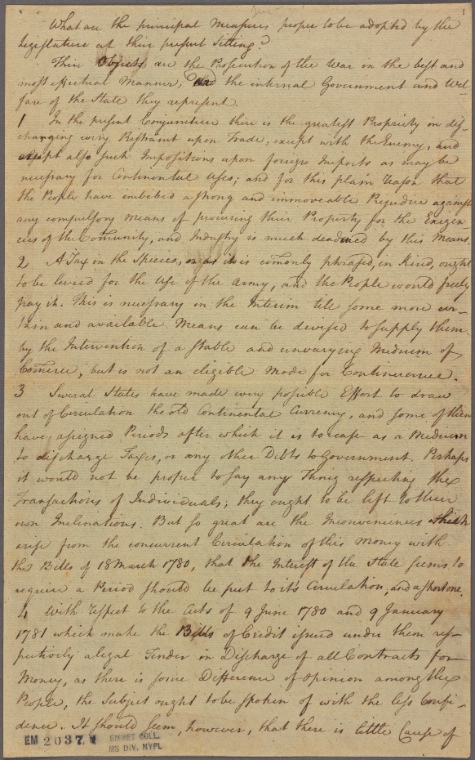 What are the principal Measures proper to be adopted by the
Legislature at their present Sitting?
Their Objects are the Prosecution of the War in the best and
most effectual Manner, and the internal Government and Wel-
fare of the State they represent.
1 In the present Conjuncture there is the greatest Propriety in dis-
charging every Restraint upon Trade, except with the Enemy, and
except also such Impositions upon foreign Imports as may be
necessary for Continental Uses; and for this plain Reason that
the People have imbibed a strong and immoveable Prejudice against
any compulsory means of procuring their Property for the Exigen-
cies of the Community, and Industry is much deadened by this Means.
2 A Tax in the Species, or as it is comonly phrased, in Kind, ought
to be levied for the Use of the Army, and the People would freely
pay it. This is necessary in the Interim till some more cer-
tain and available Means can be devised to supply them
by the Intervention of a stable and unvarying Medium of
Comerce, but is not an eligible Mode for Continuance.
3 Several States have made every possible Effort to draw
out of Circulation the old Continental Currency, and some of them
have assigned Periods after which it is to cease as a Medium
to discharge Taxes, or any other Debts to Government. Perhaps
it would not be proper to say any Thing respecting the
Transactions of Individuals; they ought to be left to their
own Inclinations. But so great are the Inconveniences which
arise from the concurrent Circulation of this Money with
the Bills of 18 March 1780, that the Interest of the State seems to
require a Period should be put to its Circulation, and a short one.
4 With respect to the Acts of 9 June 1780 and 9 January
1781 which make the Bills of Credit issued under them res-
pectively a legal Tender in Discharge of all Contracts for
Money, as there is some Difference of opinion among the
People, the Subject ought to be spoken of with the less Confi-
dence. It should seem, however, that there is little Cause of
EM 2037.1 EMMET COLL.
MS DIV. NYPL